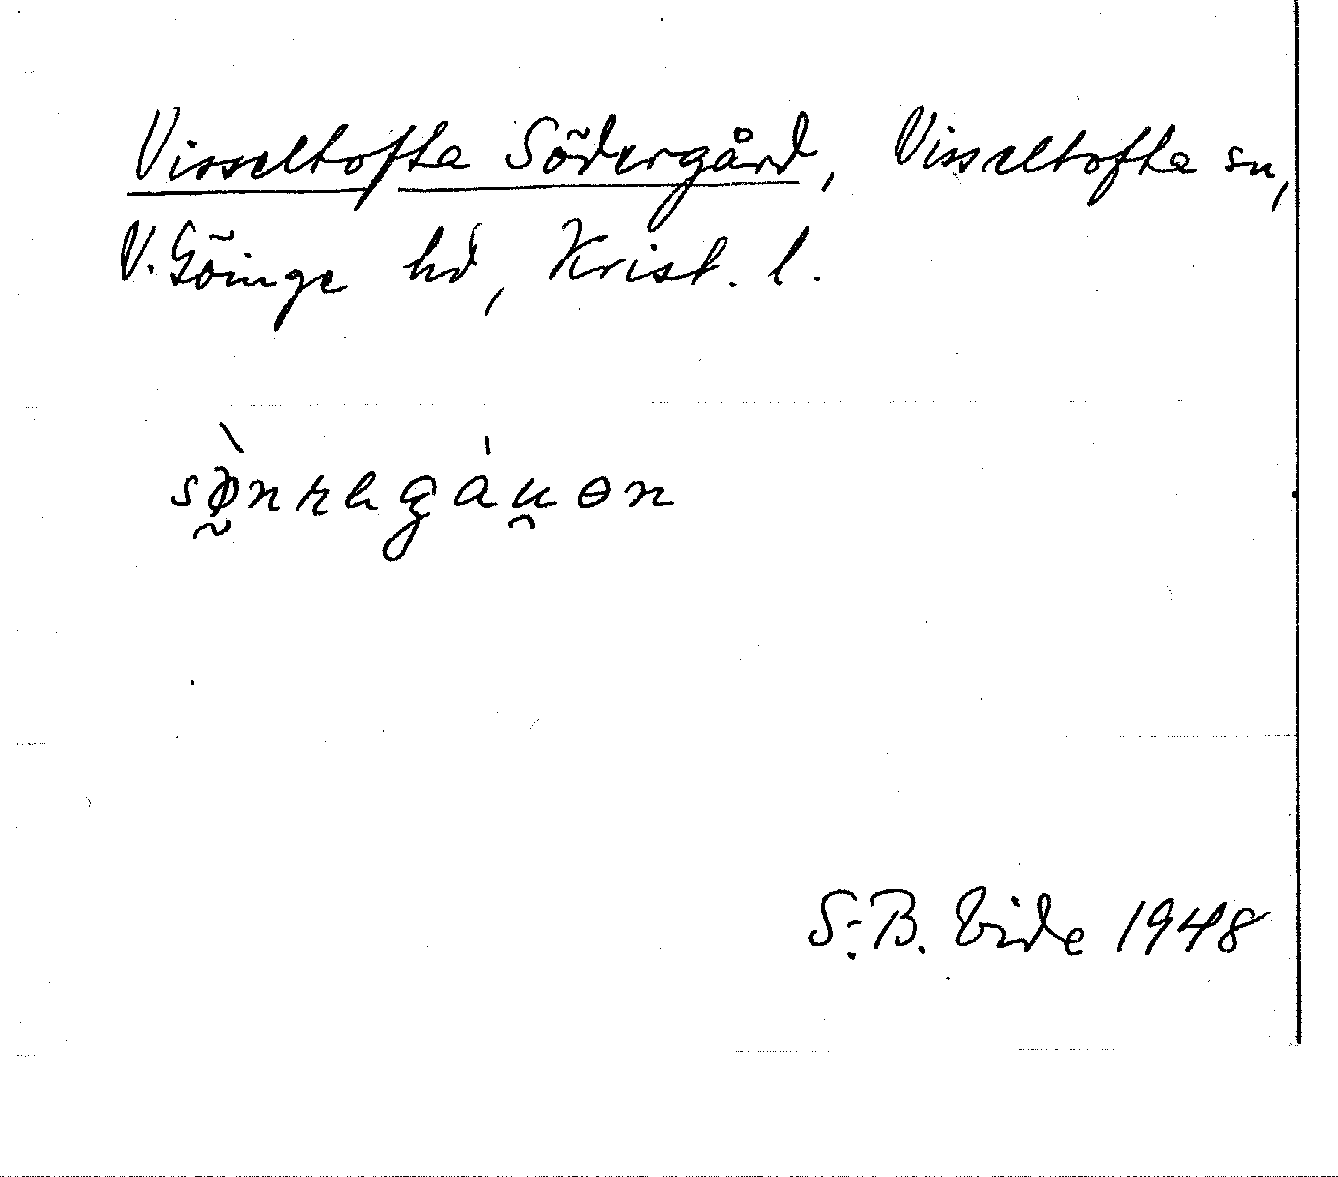 Visseltofta Södergård, Visseltofta sn,
V. Göinge hd, Krist. l.
sø̰̀nragáu̯ɵn
S.-B. Vide 1948